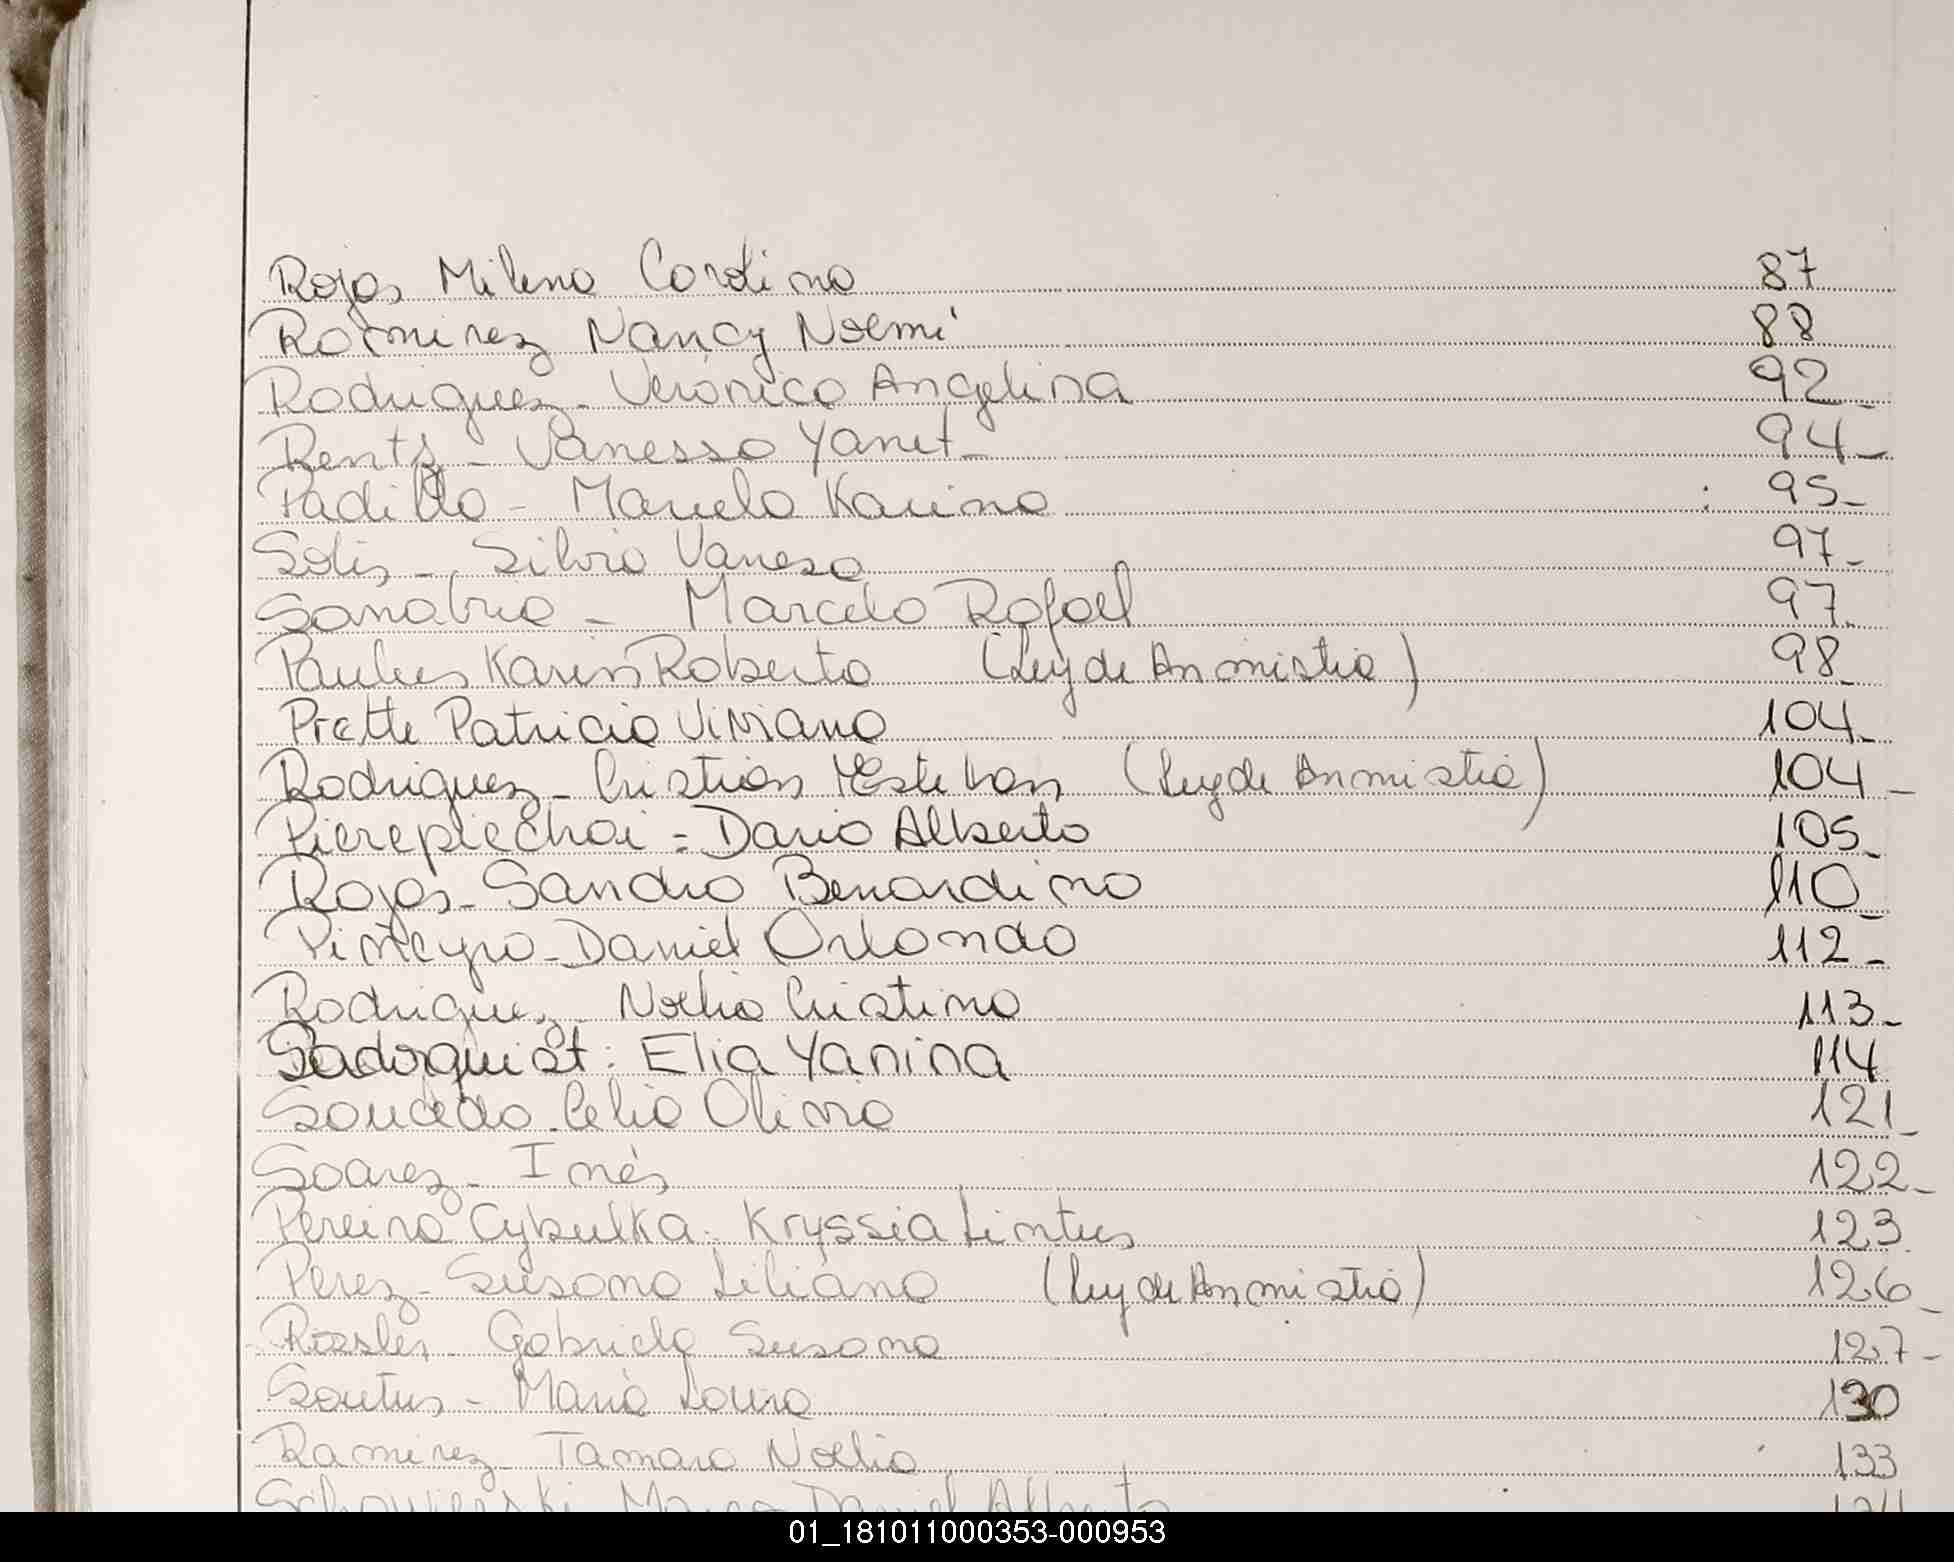 Rojas Milena Carolina 87
Ramirez Nancy Noemi 88
Rodriguez - Verónica Angelina 92-
Rentz - Vanessa Yanet - 94-
Padilla - Marcela Karina 95-
Solis - Silvia Vanesa 97-
Sanabria - Marcelo Rafael 97-
Paulus Karin Roberta (Ley de Anmistia) 98-
Prette Patricia Viviana 104-
Rodriguez - Cristian Esteban (Ley de Anmistia) 104-
Pierepiechoi = Dario Alberto 105-
Rojas - Sandro Benardino 110-
Piñeyro - Daniel Orlando 112-
Rodriguez - Noelia Cristina 113-
Sadoquist : Elia Yanina 114
Saucedo - Celia Olima 121-
Soarez - Inés 122-
Pereira Cybulka - Kryssia Lintus 123
Perez - Susana Liliana (Ley de Anmistia) 126-
Gabriela Susana 127-
Santus - Maria Laura 130
Ramirez - Tamara Noelia 133
Daniel Alberto
01_181011000353-000953